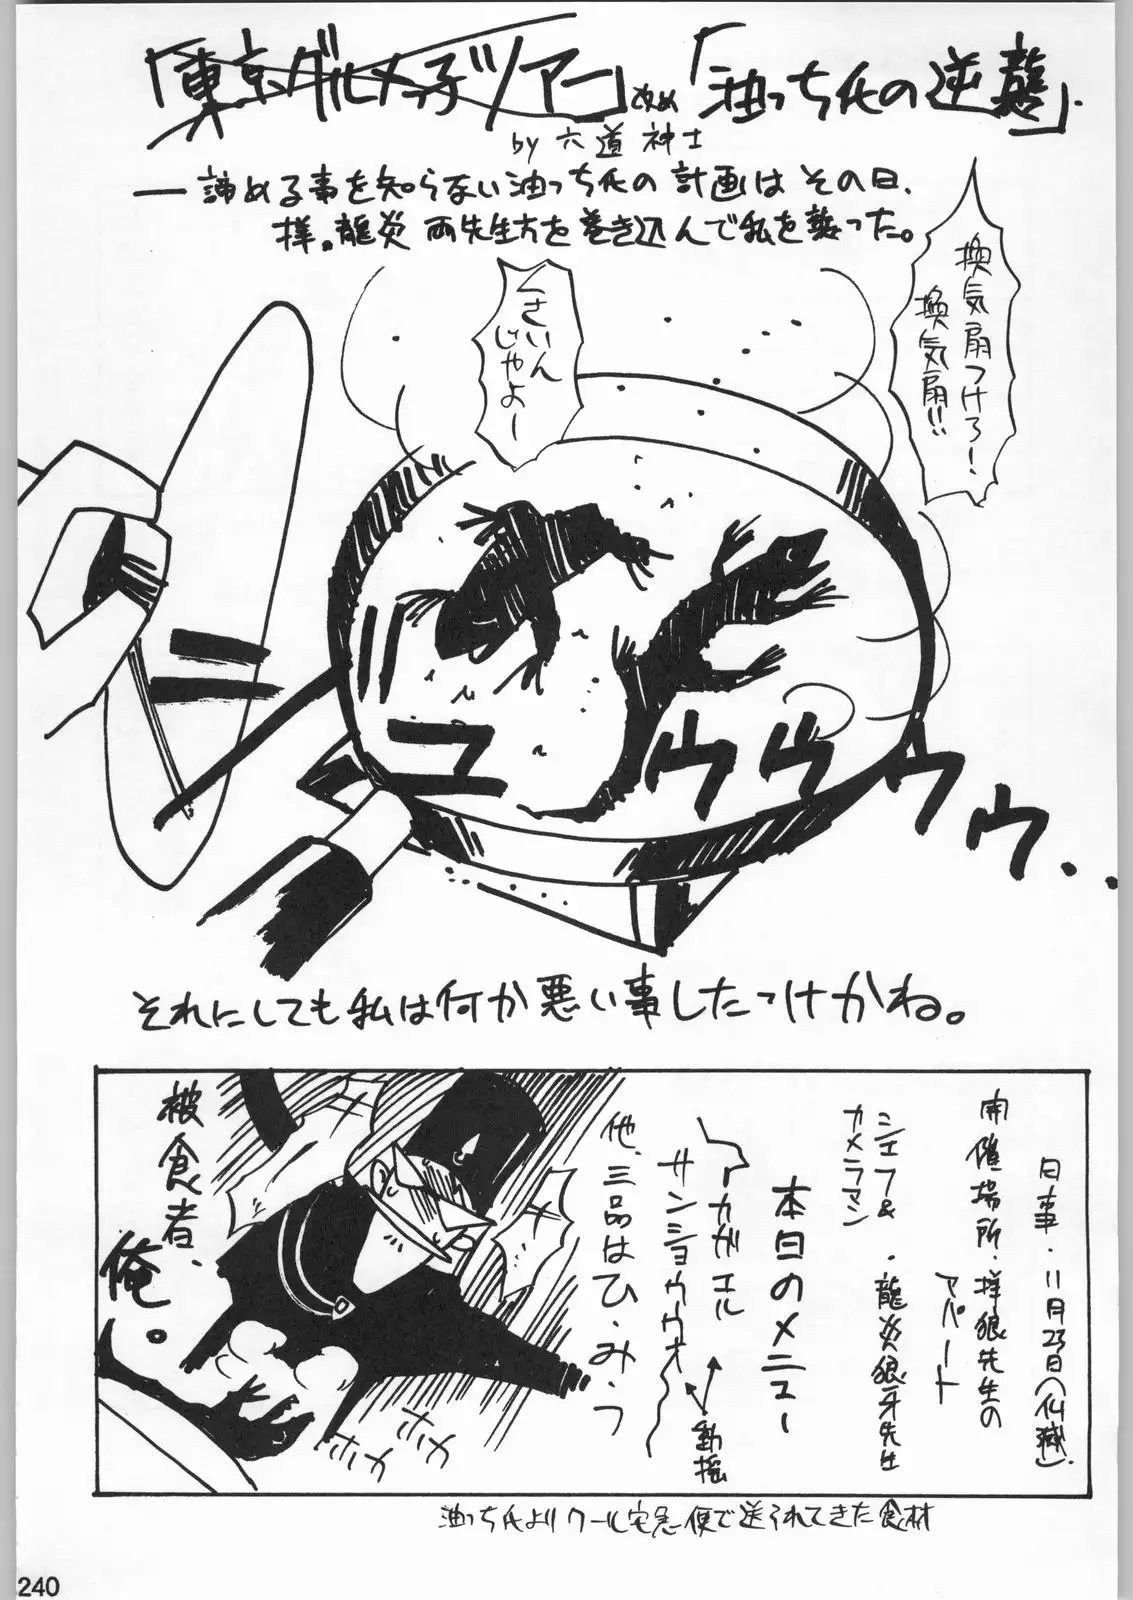 「東京グルメっ子ツアー」改め「油っち氏の逆襲」.
by 六道神士
── 諦める事を知らない油っち氏の計画はその日、
拝。龍炎 両先生方を巻き込んで私を襲った。
換気扇つけろ!
換気扇!!
くさいん
じゃよー
ニュウウウウウ..
それにしても私は何か悪い事したっけかね。
日事・11月23日(仏滅).
開催場所・拝狼先生の
アパート
シェフ&
カメラマン・龍炎狼牙先生
本日のメニュー
アカガエル
サンショウウオ
動揺
他、三品はひ・み・つ
被食者、
俺。
ホカ
ホカ
油っち氏よりクール宅急便で送られてきた食材
240